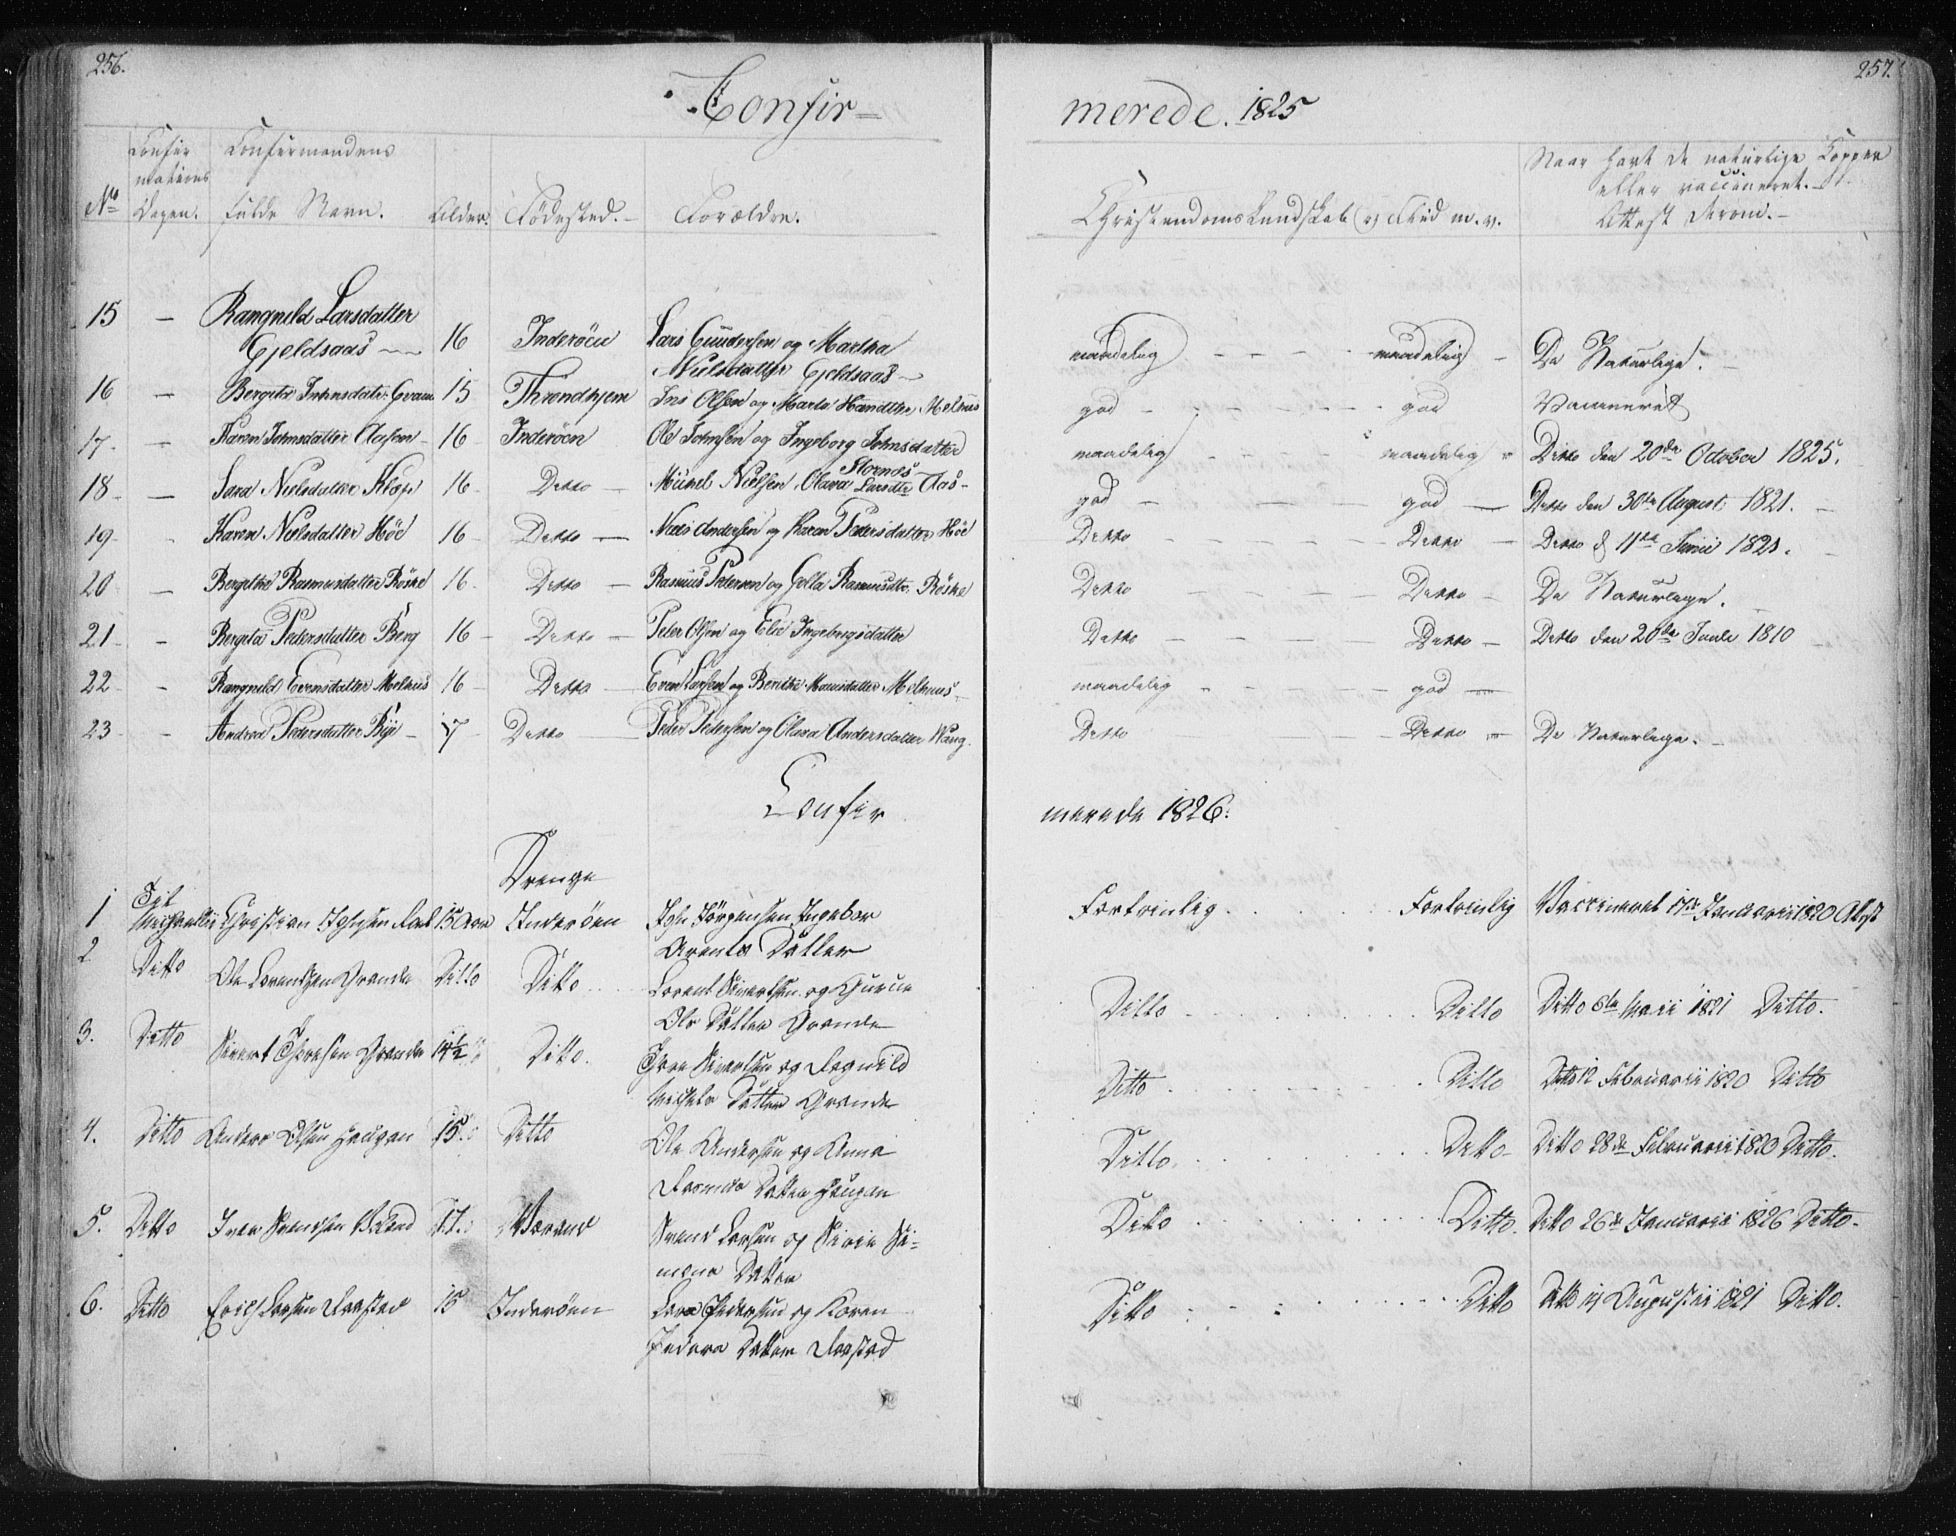 256.
257.
Confir=
merede. 1825
No
Confir
mations
Dagen.
Confirmandens
fulde Navn.
Alder.
Födested.
Forældre.
Christendoms Kundskab og Flid m. v.
Naar havt de naturlige Kopper
eller vaccineret.
Attest derom.
15 — Rangnild Larsdatter
Gjeldsaas — 16 Inderöen Lars Gundersen og Martha
Nielsdatter Gjeldsaas —
maadelig maadelig De Naturlige.
16 — Bergita Johnsdatr 15 Throndhjem Olsen og Marta Melhus
god god Vaccineret
17 — Karen Johnsdatter 16 Inderöen Ole Johnsen og Ingeborg Johnsdatter
Stornæs
maadelig maadelig Ditto den 20de October 1825.
18 — Sara Nielsdatter 16 Ditto Nielsen Olava Larsdtr Aas
god god Ditto den 30te August 1821.
19 Karen Nielsdatter Höe 16 Ditto Niels Andersen og Karen Pedersdatter Höe
Ditto Ditto Ditto d 11te Junii 1821.
20 — Bergithe Rasmusdatter Röske 16 Ditto Rasmus Pedersen og Golla Rasmusdtr. Röske
Ditto Ditto De Naturlige.
21 — Bergita Pedersdatter Berg 16 Ditto Peder Olsen og Elie Ingebrigsdatter
Ditto Ditto Ditto den 20de 1810
22 — Rangnild Evensdatter Melhus 16 Ditto Even Larsen og Melhuus
maadelig god
23 — Pedersdatter Bye 17 Ditto Peder Pedersen og Olava Andersdatter Wang.
Ditto Ditto De Naturlige.
Confir
merede 1826.
Drenge
1 Christian Johnsen 15 Aar Inderöen John Jörgensen Ingebor
Arents Datter
Fortrinlig Fortrinlig Vaccineret 17de Januarii 1820 Attest
2 Ditto Ole Lorentsen Grande Ditto Ditto Lorent Sivertsen og Gurue
Ols Datter Grande
Ditto Ditto Ditto 6te Maii 1821 Ditto.
3. Ditto Sivert Grande 14½ Ditto. Sivertsen og Ragnild
Datter Grande
Ditto Ditto Ditto 12 Februarii 1820 Ditto
4. Ditto Anders Olsen Haugan 15 Ditto Ole Andersen og Anna
Rasmus Datter Haugan
Ditto Ditto Ditto 28de Februarii 1820 Ditto.
5. Ditto Iver Svendsen 17 Svend Larsen og Siri Si=
mons Datter
Ditto Ditto Ditto 26de Januarii 1826 Ditto.
6. Ditto Larsen 15 Inderöen Lars Pedersen og Karen
Peders Datter
Ditto Ditto Ditto 14 Augustii 1821 Ditto.